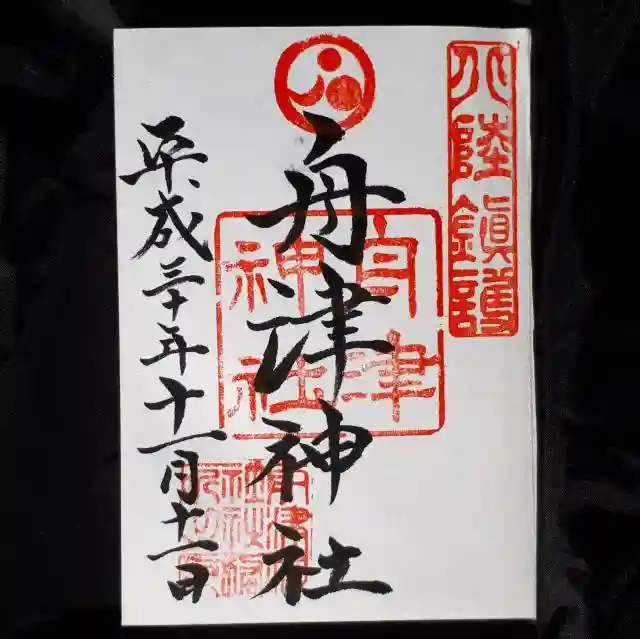 北陸鎮護
舟津神社
舟津神社
平成三十年十一月十一日